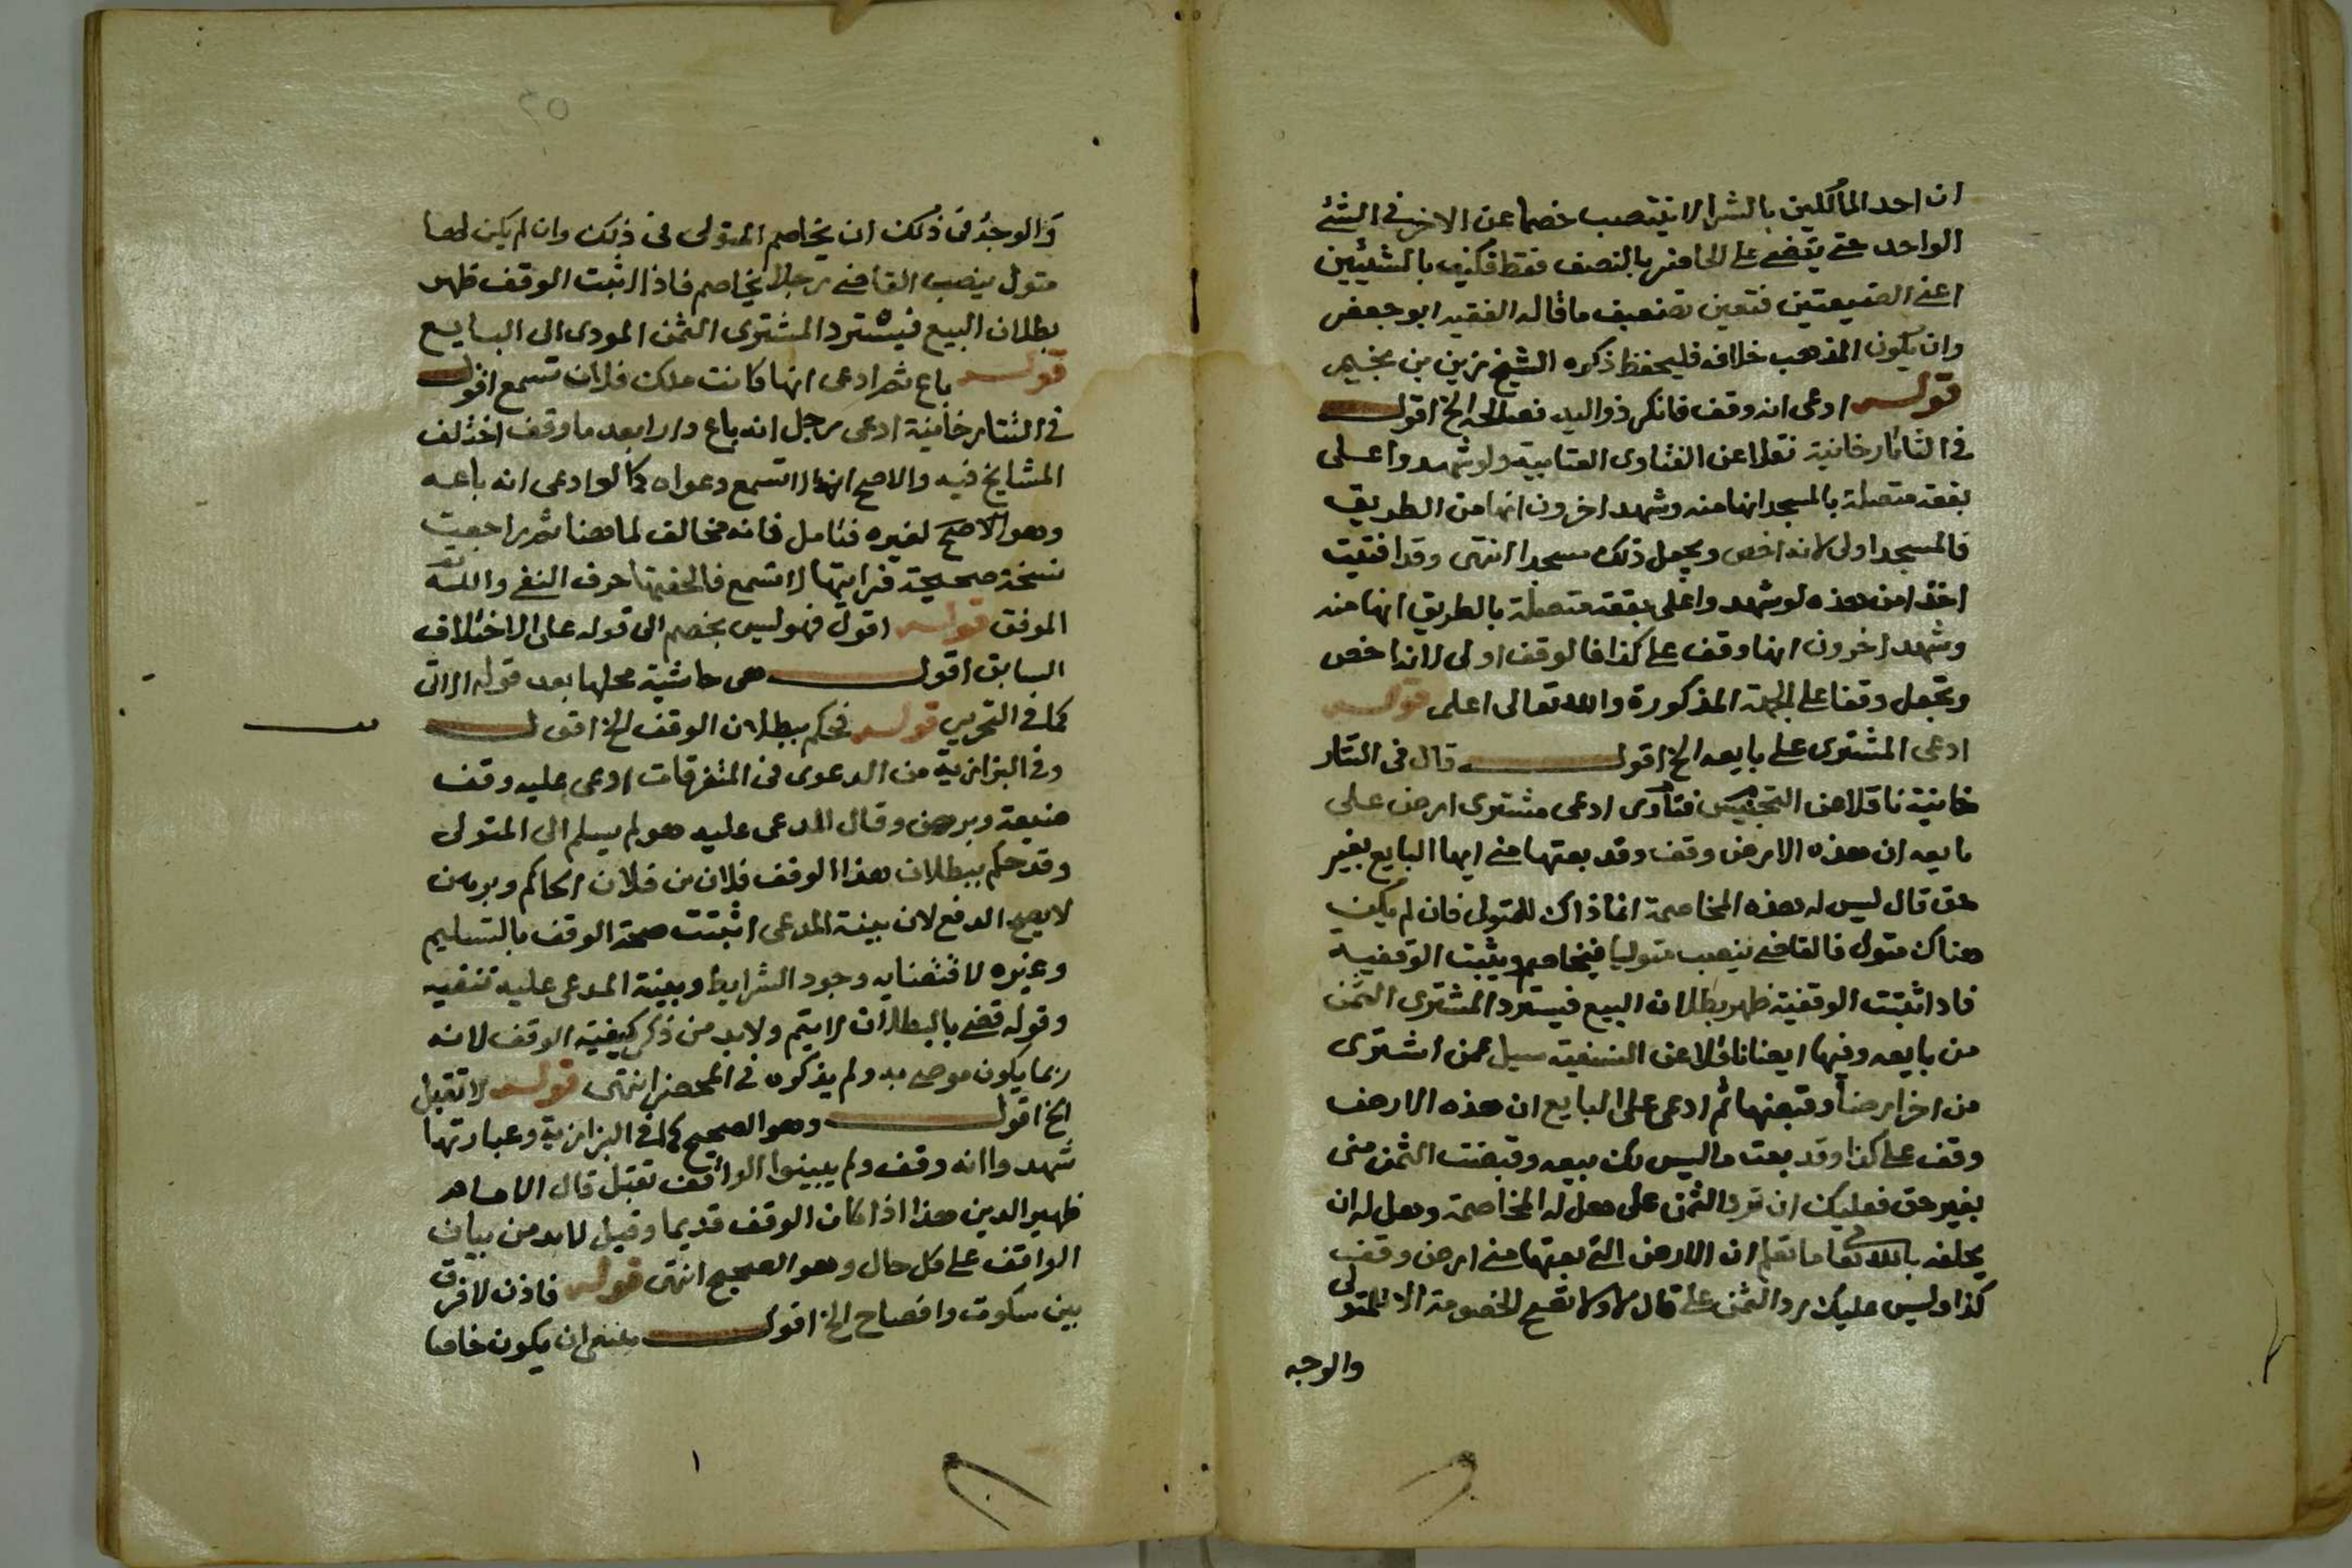 ان احد المالكين بالشرا لا ينتصب خصما عن الاخر في الشئ
الواحد حتى يقضى على الحاضر بالنصف فقط فكيف بالشيئين
اعنى الضيعتين فتعين تضعيف ما قاله الفقيه ابو جعفر
وان يكون المذهب خلافه فليحفظ ذكره الشيخ زين بن نجيم
قوله ادعى انه وقف فانكر ذو اليد فصالحه الخ اقول
في التاتارخانية نقلا عن الفتاوى العتابية ولو شهدوا على
بقعة متصلة بالمسجد انها منه وشهد اخرون انها من الطريق
فالمسجد اولى لانه اخص ويجعل ذلك مسجدا انتهى وقد افتيت
اخذا من هذه لو شهدوا على بقعة متصلة بالطريق انها منه
وشهد اخرون انها وقف على كذا فالوقف اولى لانه اخص
وتجعل وقفا على الجهة المذكورة والله تعالى اعلم قوله
ادعى المشترى على بايعه الخ اقول قال في التتار
خانية ناقلا عن التجنيس فتاوى ادعى مشترى ارض على
بايعه ان هذه الارض وقف وقد بعتها منى ايها البايع بغير
حق قال ليس له هذه المخاصمة انما ذاك للمتولى فان لم يكن
هناك متول فالقاضى ينصب متوليا فيخاصم ويثبت الوقفية
فاذا ثبتت الوقفية ظهر بطلان البيع فيسترد المشترى الثمن
من بايعه وفيها ايضا ناقلا عن النسفية سيل عمن اشترى
من اخر ارضا وقبضها ثم ادعى على البايع ان هذه الارض
وقف على كذا وقد بعت ما ليس لك بيعه وقبضت الثمن منى
بغير حق فعليك ان ترد الثمن على هل له المخاصمة وهل له ان
يحلفه بالله تعالى ما تعلم ان الارض التى بعتها منى ارض وقف
كذا وليس عليك رد الثمن على قال لا ولا تصح الخصومة الا للمتولى
والوجه
والوجه فى ذلك ان يخاصم المتولى فى ذلك وان لم يكن لها
متول ينصب القاضى رجلا يخاصم فاذا اثبت الوقف ظهر
بطلان البيع فيسترد المشترى الثمن المودى الى البايع
قوله باع ثم ادعى انها كانت ملك فلان تسمع اقول
في التتارخانية ادعى رجل انه باع دارا بعد ما وقف اختلف
المشايخ فيه والاصح انها لا تسمع دعواه كما لو ادعى انه باعه
وهو الاصح لغيره فتامل فانه مخالف لما هنا ثم راجعت
نسخة صحيحة فرايتها لا تسمع فالحقتها حرف النفى والله
الموفق قوله اقول فهو ليس بخصم الى قوله على الاختلاف
السابق اقول هى حاشية محلها بعد قوله الاتى
كما في التحرير قوله فحكم ببطلان الوقف الخ اقول
وفي البزازية من الدعوى فى المتفرقات ادعى عليه وقف
ضيعة وبرهن وقال المدعى عليه هو لم يسلم الى المتولى
وقد حكم ببطلان هذا الوقف فلان بن فلان الحاكم وبرهن
لا يصح الدفع لان بينة المدعى اثبتت صحة الوقف بالتسليم
وغيره لاقتضايه وجود الشرايط وبينة المدعى عليه تنفيه
وقوله قضى بالبطلان لا يتم ولابد من ذكر كيفية الوقف لانه
ربما يكون موصى به ولم يذكره في المحضر انتهى قوله لا تقبل
الخ اقول وهو الصحيح كما في البزازية وعبارتها
شهدوا انه وقف ولم يبينوا الواقف تقبل قال الامام
ظهير الدين هذا اذا كان الوقف قديما وقيل لابد من بيان
الواقف على كل حال وهو الصحيح انتهى قوله فاذن لا فرق
بين سكوت وافصاح الخ اقول ينبغى ان يكون خاصا